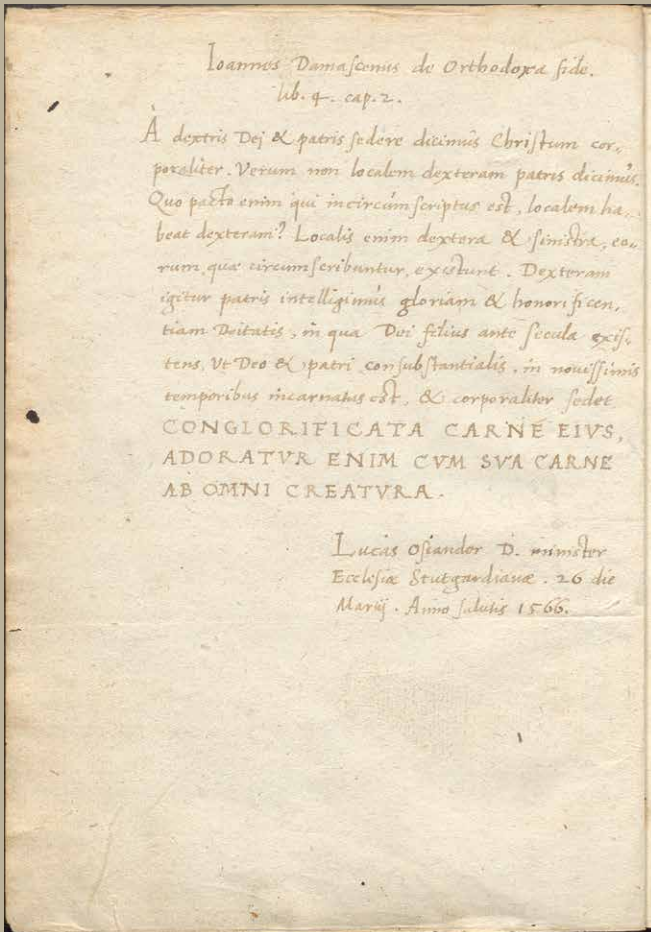 Ioannes Damascenus de Orthodoxa fide.
lib. 4. cap. 2.
A dextris Dej & patris sedere dicimus Christum cor-
poraliter. Verum non localem dexteram patris dicimus.
Quo pacto enim qui incircumscriptus est, localem ha-
beat dexteram? Localis enim dextera & sinistra, eo-
rum, quæ circumscribuntur, existunt. Dexteram
igitur patris intelligimus gloriam & honorificen-
tiam Deitatis, in qua Dei filius ante secula exis-
tens, ut Deo & patri consubstantialis, in nouissimis
temporibus incarnatus est, & corporaliter sedet
CONGLORIFICATA CARNE EIVS,
ADORATVR ENIM CVM SVA CARNE
AB OMNI CREATVRA.
Lucas Osiander D. minister
Ecclesiæ Stutgardianæ. 26 die
Martij. Anno salutis 1566.